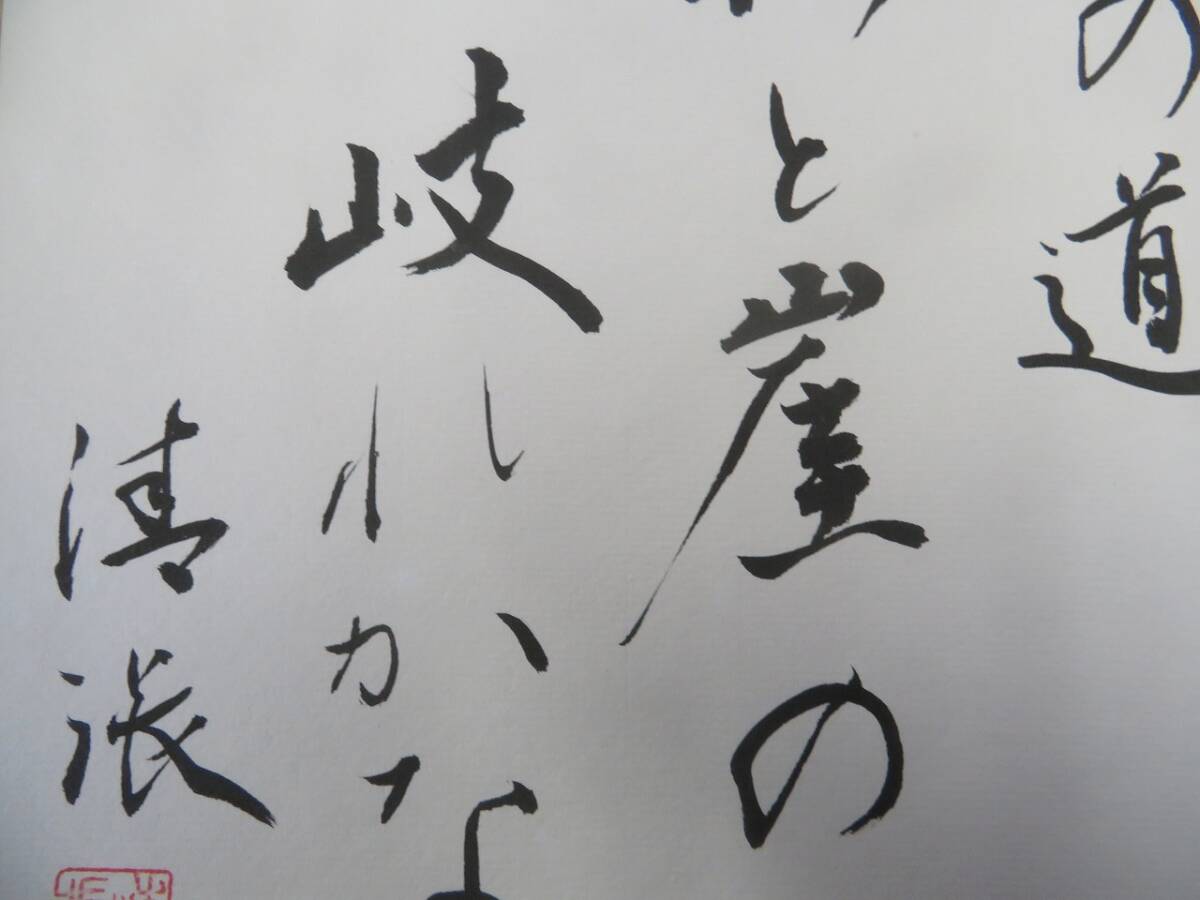 の道
と崖の
岐れかな
清張